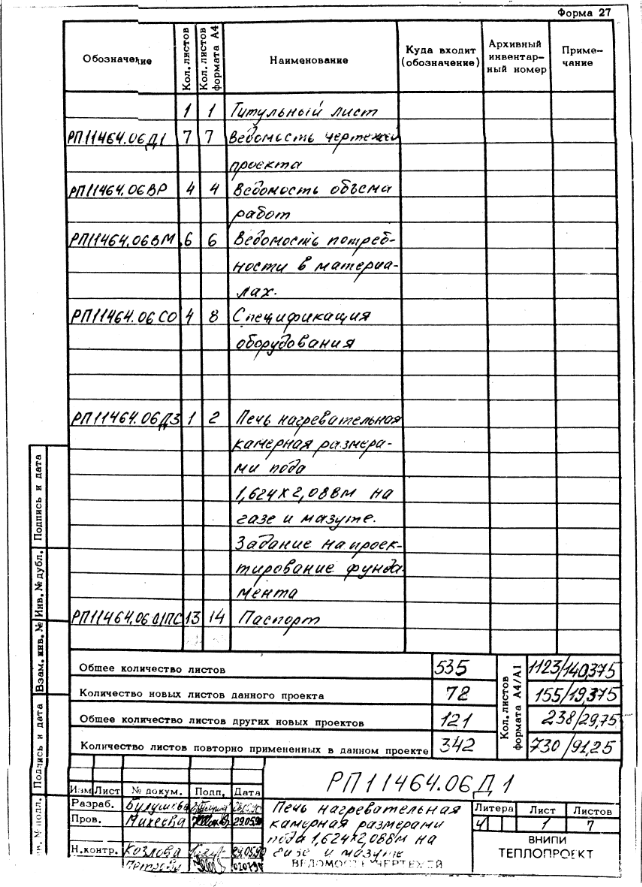 Форма 27
Обозначение Кол. листов Кол. листов формата А4 Наименование Куда входит (обозначение) Архивный инвентарный номер Примечание
1 1 Титульный лист
РП11464.06Д1 7 7 Ведомость чертежей
проекта
РП11464.06ВР 4 4 Ведомость объема
работ
РП11464.06ВМ 6 6 Ведомость потреб-
ности в материа-
лах.
РП11464.06СО 4 8 Спецификация
оборудования
РП11464.06Д3 1 2 Печь нагревательная
камерная размера-
ми пода
1,624х2,088м на
газе и мазуте.
Задание на проек-
тирование фунда
мента
РП11464.06.01ПС 13 14 Паспорт
Общее количество листов 535 Кол. листов формата А4/А1 1123/140,375
Количество новых листов данного проекта 72 155/19,375
Общее количество листов других новых проектов 121 238/29,75
Количество листов повторно примененных в данном проекте 342 730/91,25
Подпись и дата
Инв. № дубл.
Взам. инв. №
Подпись и дата
№ подл.
РП11464.06Д1
Изм Лист № докум. Подп. Дата
Разраб.
Пров. Михеева 29.05.90
Н.контр. Козлова
Печь нагревательная
камерная размерами
пода 1,624х2,088м на
газе и мазуте
ВЕДОМОСТЬ ЧЕРТЕЖЕЙ
Литера Лист Листов
1 7
ВНИПИ
ТЕПЛОПРОЕКТ